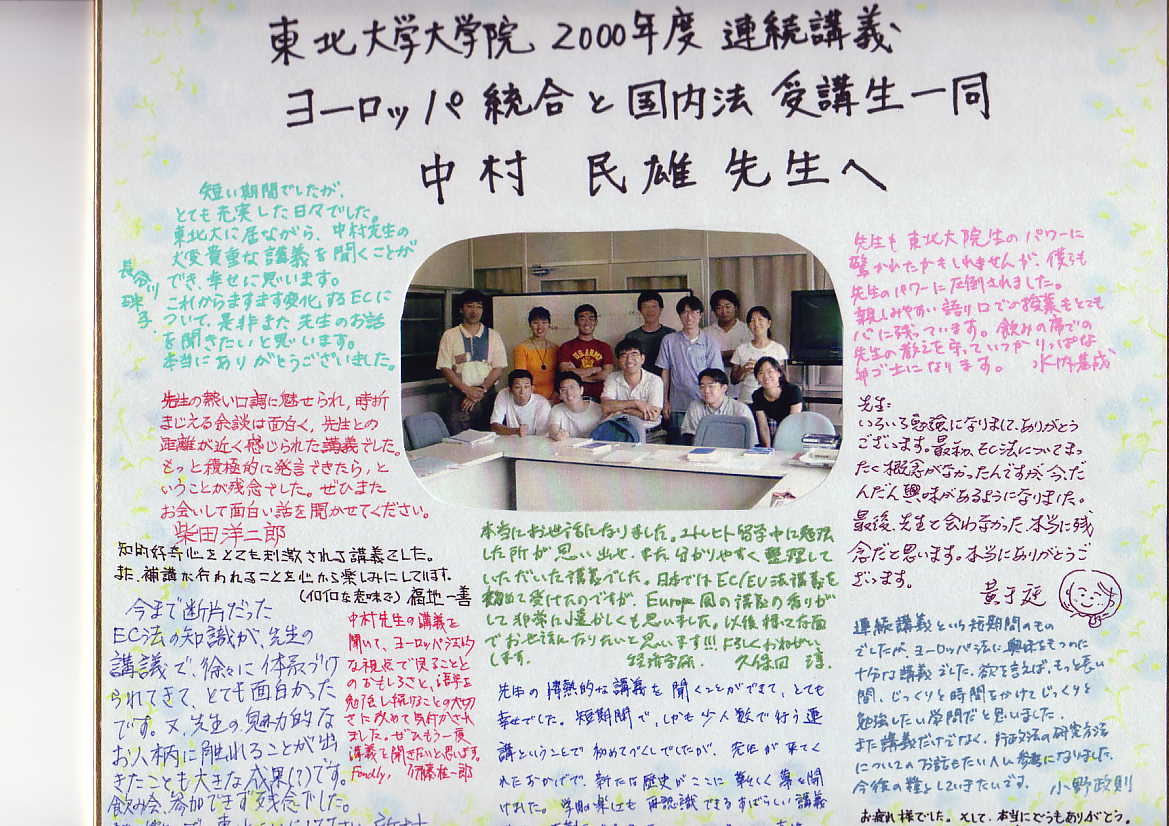 東北大学大学院 2000年度 連続講義
ヨーロッパ統合と国内法 受講生一同
中村 民雄 先生へ
短い期間でしたが、
とても充実した日々でした。
東北大に居ながら、中村先生の
大変貴重な講義を聞くことが
でき、幸せに思います。
これからますます変化するECに
ついて、是非また先生のお話
を聞きたいと思います。
本当にありがとうございました。
長谷川
子
先生の熱い口調に魅せられ、時折
まじえる余談は面白く、先生との
距離が近く感じられた講義でした。
もっと積極的に発言できたら、と
いうことが残念でした。ぜひまた
お会いして面白い話を聞かせてください。
柴田洋二郎
知的好奇心をとても刺激される講義でした。
また、補講が行われることを心から楽しみにしています。
(色々な意味で) 福地一善
今まで断片だった
EC法の知識が、先生の
講義で、徐々に体系づけ
られてきて、とても面白かった
です。又、先生の魅力的な
お人柄に触れることが出
きたことも大きな成果(?)です。
飲み会、参加できず残念でした。
中村先生の講義を
聞いて、ヨーロッパ法という
な視点で見ることと
のおもしろさと、語学を
勉強し続けることの大切
さに改めて気付かされ
ました。ぜひもう一度
講義を聞きたいと思います。
伊藤 一郎
U.S. ARMY
本当にお世話になりました。ユトレヒト留学中に勉強
した所が思い出せ、また分かりやすく整理して
いただいた講義でした。日本ではEC/EU法講義を
初めて受けたのですが、Europe 風の講義の香りが
して非常に懐かしくも思いました。以後様々な面
でお世話になりたいと思います!!! よろしくおねがい
します。 経済学研. 久保田 淳
先生の情熱的な講義を聞くことができて、とても
幸せでした。短期間で、しかも少人数で行う連
講ということで初めてづくしでしたが、先生が来てく
れたおかげで、新たな歴史がここに華々しく幕を開
けました。学問の楽しさも再認識できるすばらしい講義
先生も東北大院生のパワーに
驚かれたかもしれませんが、僕らも
先生のパワーに圧倒されました。
親しみやすい語り口での授業もとても
心に残っています。飲みの席での
先生の教えを守っていつかりっぱな
弁ゴ士になります。 水内基成
先生:
いろいろ勉強になりまして、ありがとう
ございます。最初、EC法についてまっ
たく概念がなかったんですが、今、だ
んだん興味があるようになりました。
最後、先生と会わなかった、本当に残
念だと思います。本当にありがとうご
ざいます。
黄于庭
連続講義という短期間のもの
でしたが、ヨーロッパ法に興味をもつのに
十分な講義でした。欲を言えば、もっと長い
間、じっくりと時間をかけてじっくりと
勉強したい学問だと思いました。
また講義だけでなく、行政法の研究方法
についてのお話もたいへん参考になりました。
今後の糧としていきたいです。 小野政則
お疲れ様でした。そして、本当にどうもありがとう。